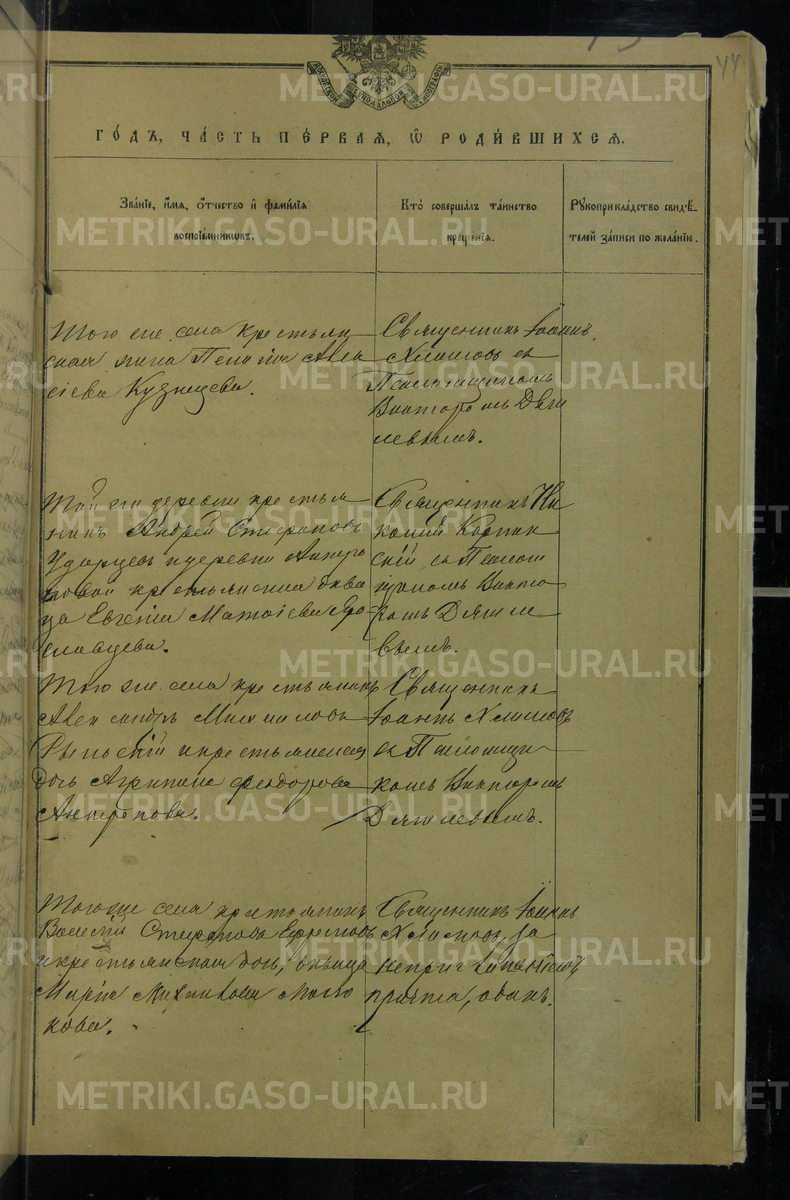 44
МОСКОВСКОЙ СѴНОДАЛЬНОЙ ТИПОГРАФІИ
ГОДЪ, ЧАСТЬ ПЕРВАЯ, Ѡ РОДИВШИХСЯ.
Званіе, имя, отчество и фамилія воспріемниковъ.
Кто совершалъ таинство крещенія.
Рукоприкладство свидѣтелей записи по желанію.
Того же села крестьян
ская жена Пелагія Алек
сіева Кузнецова.
Священникъ Іоаннъ
Хлыновъ съ
Псаломщикомъ
Викторомъ Дягі
левымъ.
Той же деревни крестья
нинъ Андрей Стефановъ
Ударцевъ и деревни Антро
повой крестьянская дѣви
ца Евгенія Матѳіева Яро
славцева.
Священникъ Ни
колай
скій съ Псалом
щикомъ Викто
ромъ Дягиле
вымъ.
Того же села крестьянинъ
Александръ Михаиловъ
и крестьянская
дочь Агрипина Феодорова
Антропова.
Священникъ
Іоаннъ Хлыновъ
съ Псаломщи
комъ Викторомъ
Дягилевымъ.
Того же села крестьянинъ
Василій Стефановъ Ефремовъ
и крестьянская дочь, дѣвица
Марія Михаилова Моло
кова.
Священникъ Іоаннъ
Хлыновъ, за
причта, одинъ.
METRIKI.GASO-URAL.RU